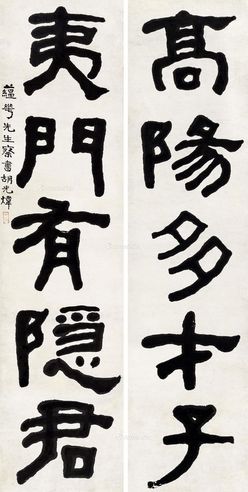 高陽多才子
夷門有隱君
蘊華先生察書胡光煒